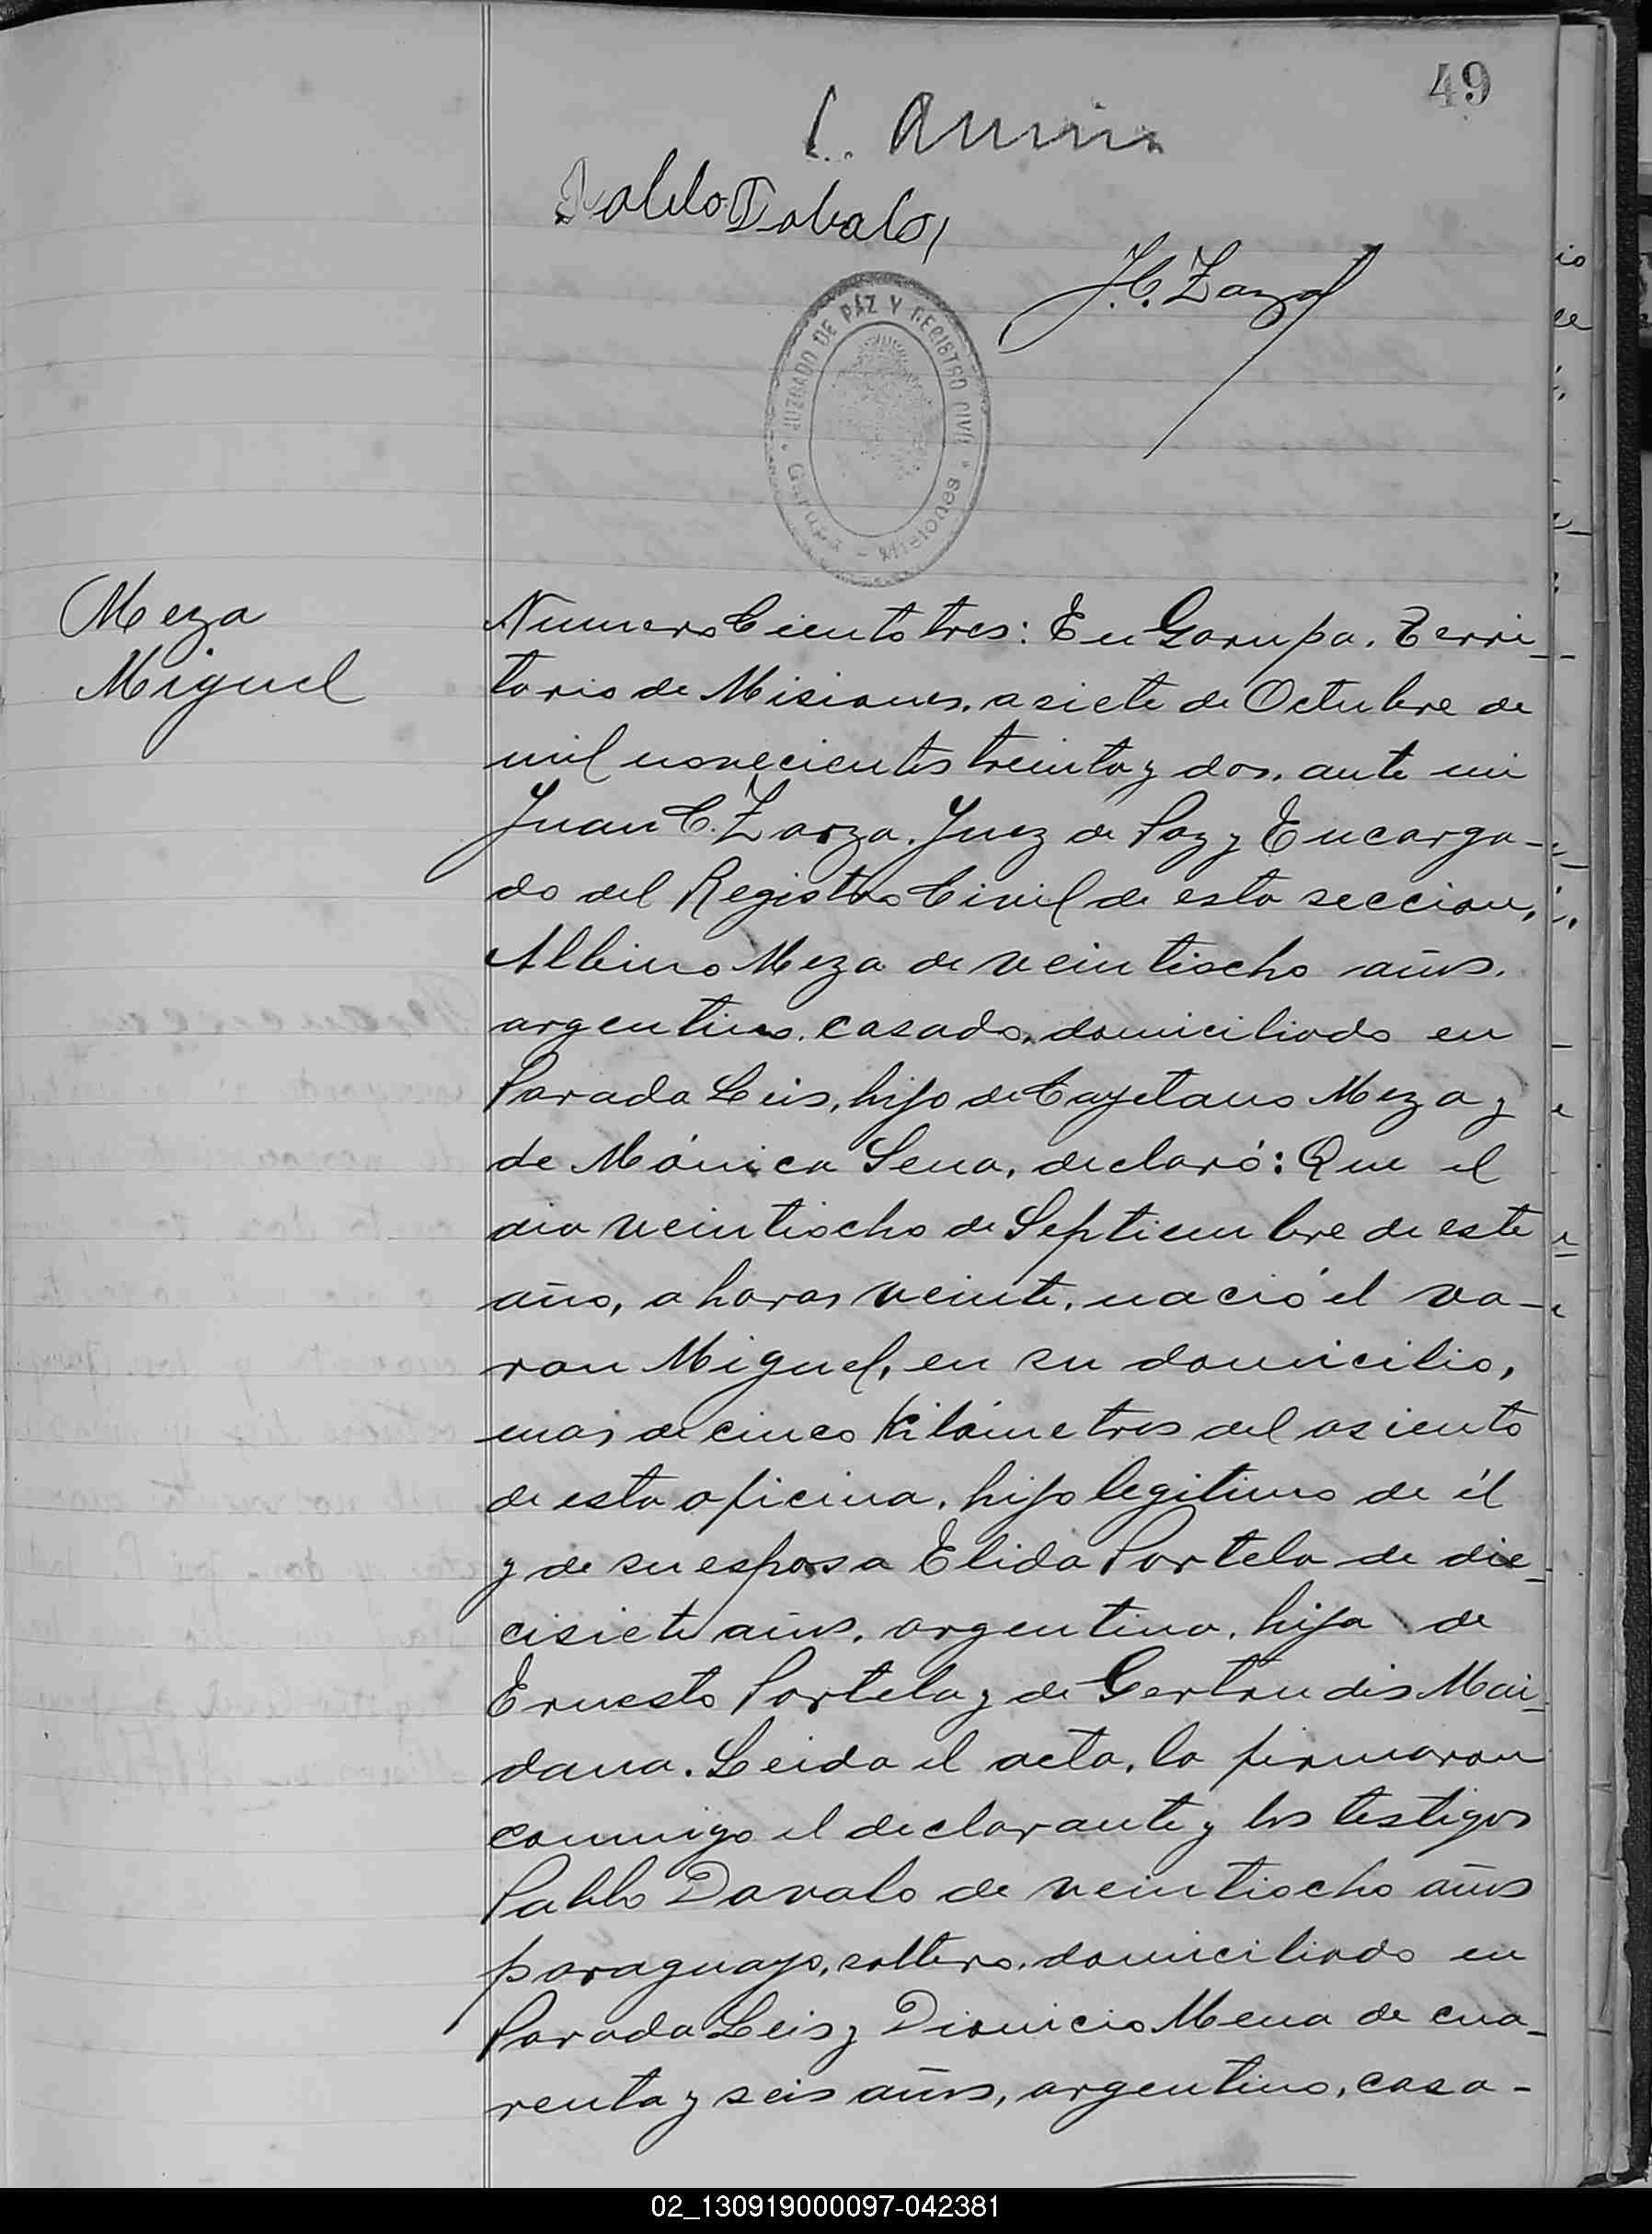 49
Pablo Dabalo
J.C. Zarza
JUZGADO DE PAZ Y REGISTRO CIVIL
Garupá - Misiones
Meza
Miguel
Numero Ciento tres: En Garupa, Terri-
torio de Misiones, a siete de Octubre de
mil novecientos treinta y dos, ante mi
Juan C. Zarza, Juez de Paz y Encarga-
do del Registro Civil de esta seccion,
Albino Meza de veintiocho años,
argentino, casado, domiciliado en
Parada Leis, hijo de Cayetano Meza y
de Mónica Sena, declaró: Que el
dia veintiocho de Septiembre de este
año, a horas veinte, nació el va-
ron Miguel, en su domicilio,
mas de cinco Kilómetros del asiento
de esta oficina, hijo legitimo de él
y de su esposa Elida Portela de die-
cisiete años, argentina, hija de
Ernesto Portela y de Gertrudis Mai-
dana. Leida el acta, la firmaron
conmigo el declarante y los testigos
Pablo Davalo de veintiocho años
paraguayo, soltero, domiciliado en
Parada Leis y Dionicio Mena de cua-
renta y seis años, argentino, casa-
02_130919000097-042381